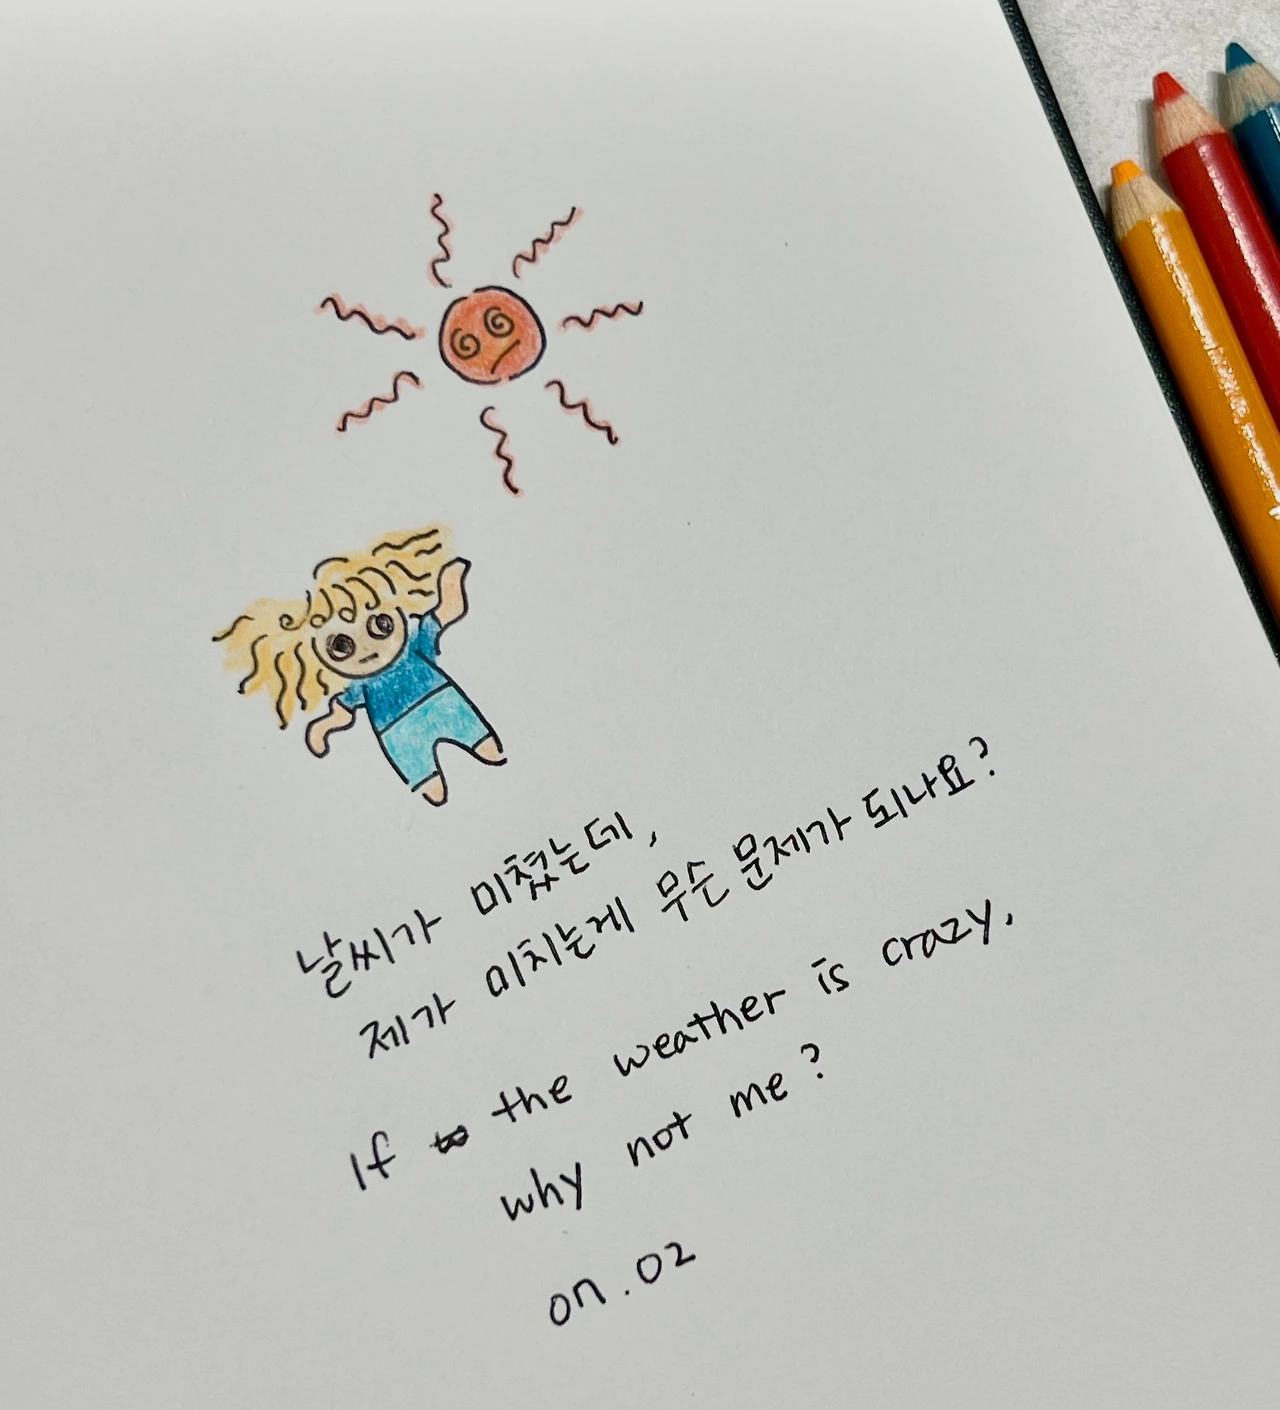 날씨가 미쳤는데,
제가 미치는게 무슨 문제가 되나요?
If the weather is crazy.
why not me?
on.02